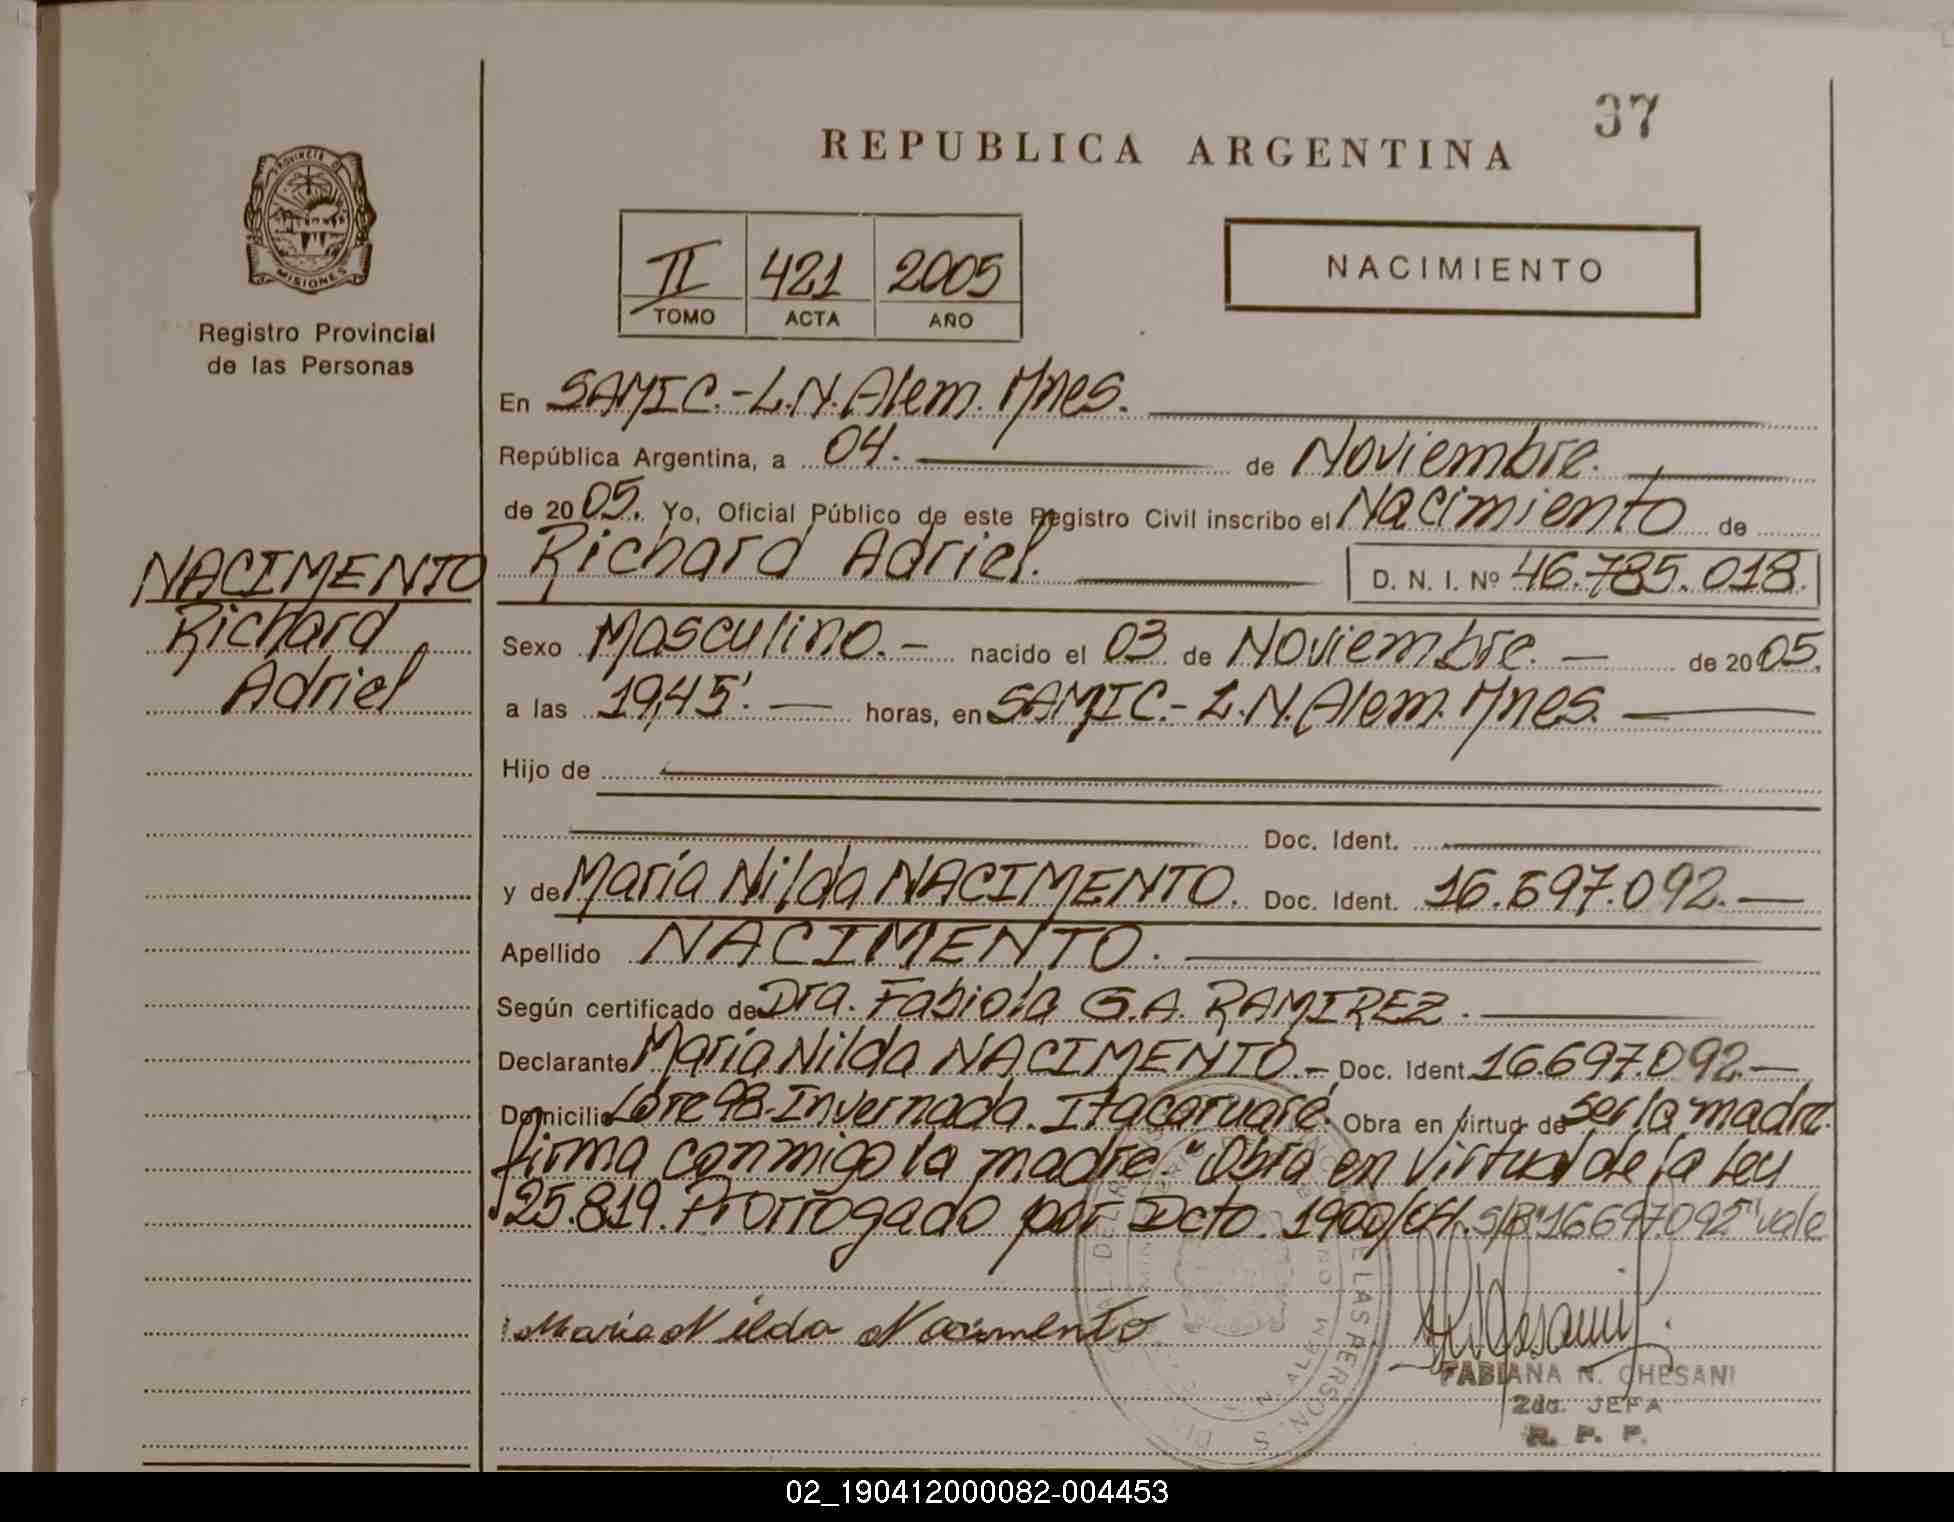 37
REPUBLICA ARGENTINA
PROVINCIA DE
MISIONES
Registro Provincial
de las Personas
II 421 2005
TOMO ACTA AÑO
NACIMIENTO
En SAMIC.-L.N.Alem. Mnes.
República Argentina, a 04. de Noviembre.
de 2005. Yo, Oficial Público de este Registro Civil inscribo el Nacimiento de
Richard Adriel. D. N. I. Nº 46.785.018.
NACIMENTO
Richard
Adriel
Sexo Masculino.- nacido el 03 de Noviembre. - de 2005.
a las 19,45'. - horas, en SAMIC.- L.N.Alem. Mnes.
Hijo de
Doc. Ident.
y de María Nilda NACIMENTO. Doc. Ident. 16.697.092.-
Apellido NACIMENTO.
Según certificado de Dra. Fabiola G.A. RAMIREZ.
Declarante María Nilda NACIMENTO.- Doc. Ident. 16.697.092.-
Domicilio Lote 98-Invernada. Itacaruaré. Obra en virtud de ser la madre.
firma conmigo la madre. "Obra en virtud de la Ley
25.819. Prorrogado por Dcto. 1900/04. S/R "16697.092" vale
Maria Nilda Nacimento
FABIANA N. CHESANI
2da. JEFA
R. P. P.
02_190412000082-004453